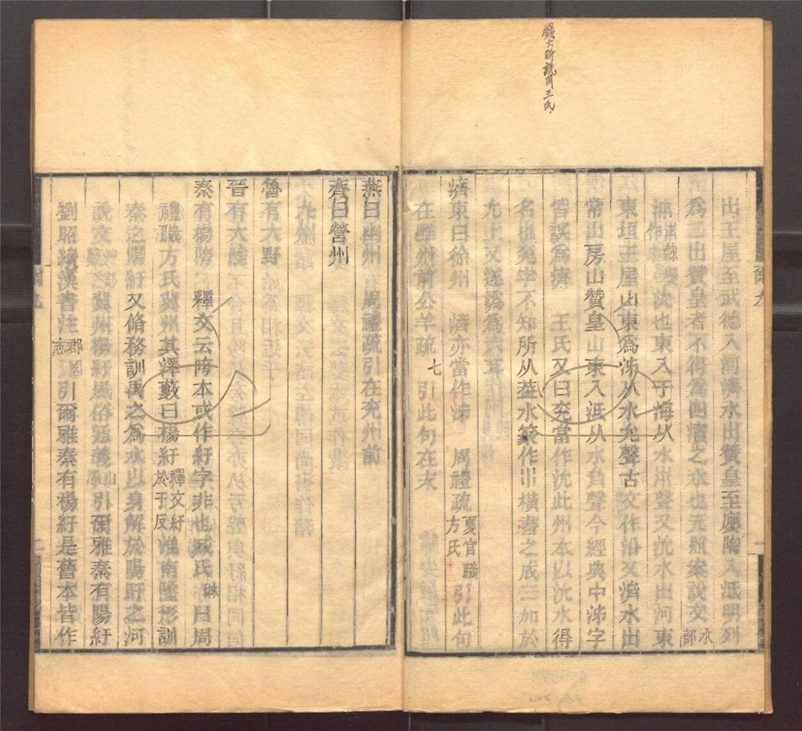 出王屋至武德入河濟水出贊皇至廮陶入泜明列
爲二出贊皇者不得爲四瀆之水也元照案說文水部
沇也東入于海从水𠂔聲又沇水出河東
東垣王屋山東爲泲从水允聲古文作沿又濟水出
常山房山贊皇山東入泜从水齊聲今經典中泲字
皆誤爲濟　王氏又曰兖當作沇此州本以沇水得
名也兖字不知所从葢水篆作巛橫書之成三加於
允上又遂譌爲六耳
濟東曰徐州　濟亦當作泲　周禮疏夏官職方氏引此句
在雝州前公羊疏七引此句在末
燕曰幽州　周禮疏引在兖州前
齊曰營州
魯有大野
晉有大陸
秦有楊陓　釋文云陓本或作紆字非也臧氏琳曰周
禮職方氏冀州其澤藪曰楊紆釋文紆於于反淮南墬形訓
秦之陽紆又脩務訓禹之爲水以身解於陽盱之河
說文冀州楊紆風俗通義引爾雅秦有陽紆
劉昭續漢書注郡國志引爾雅秦有楊紆是舊本皆作